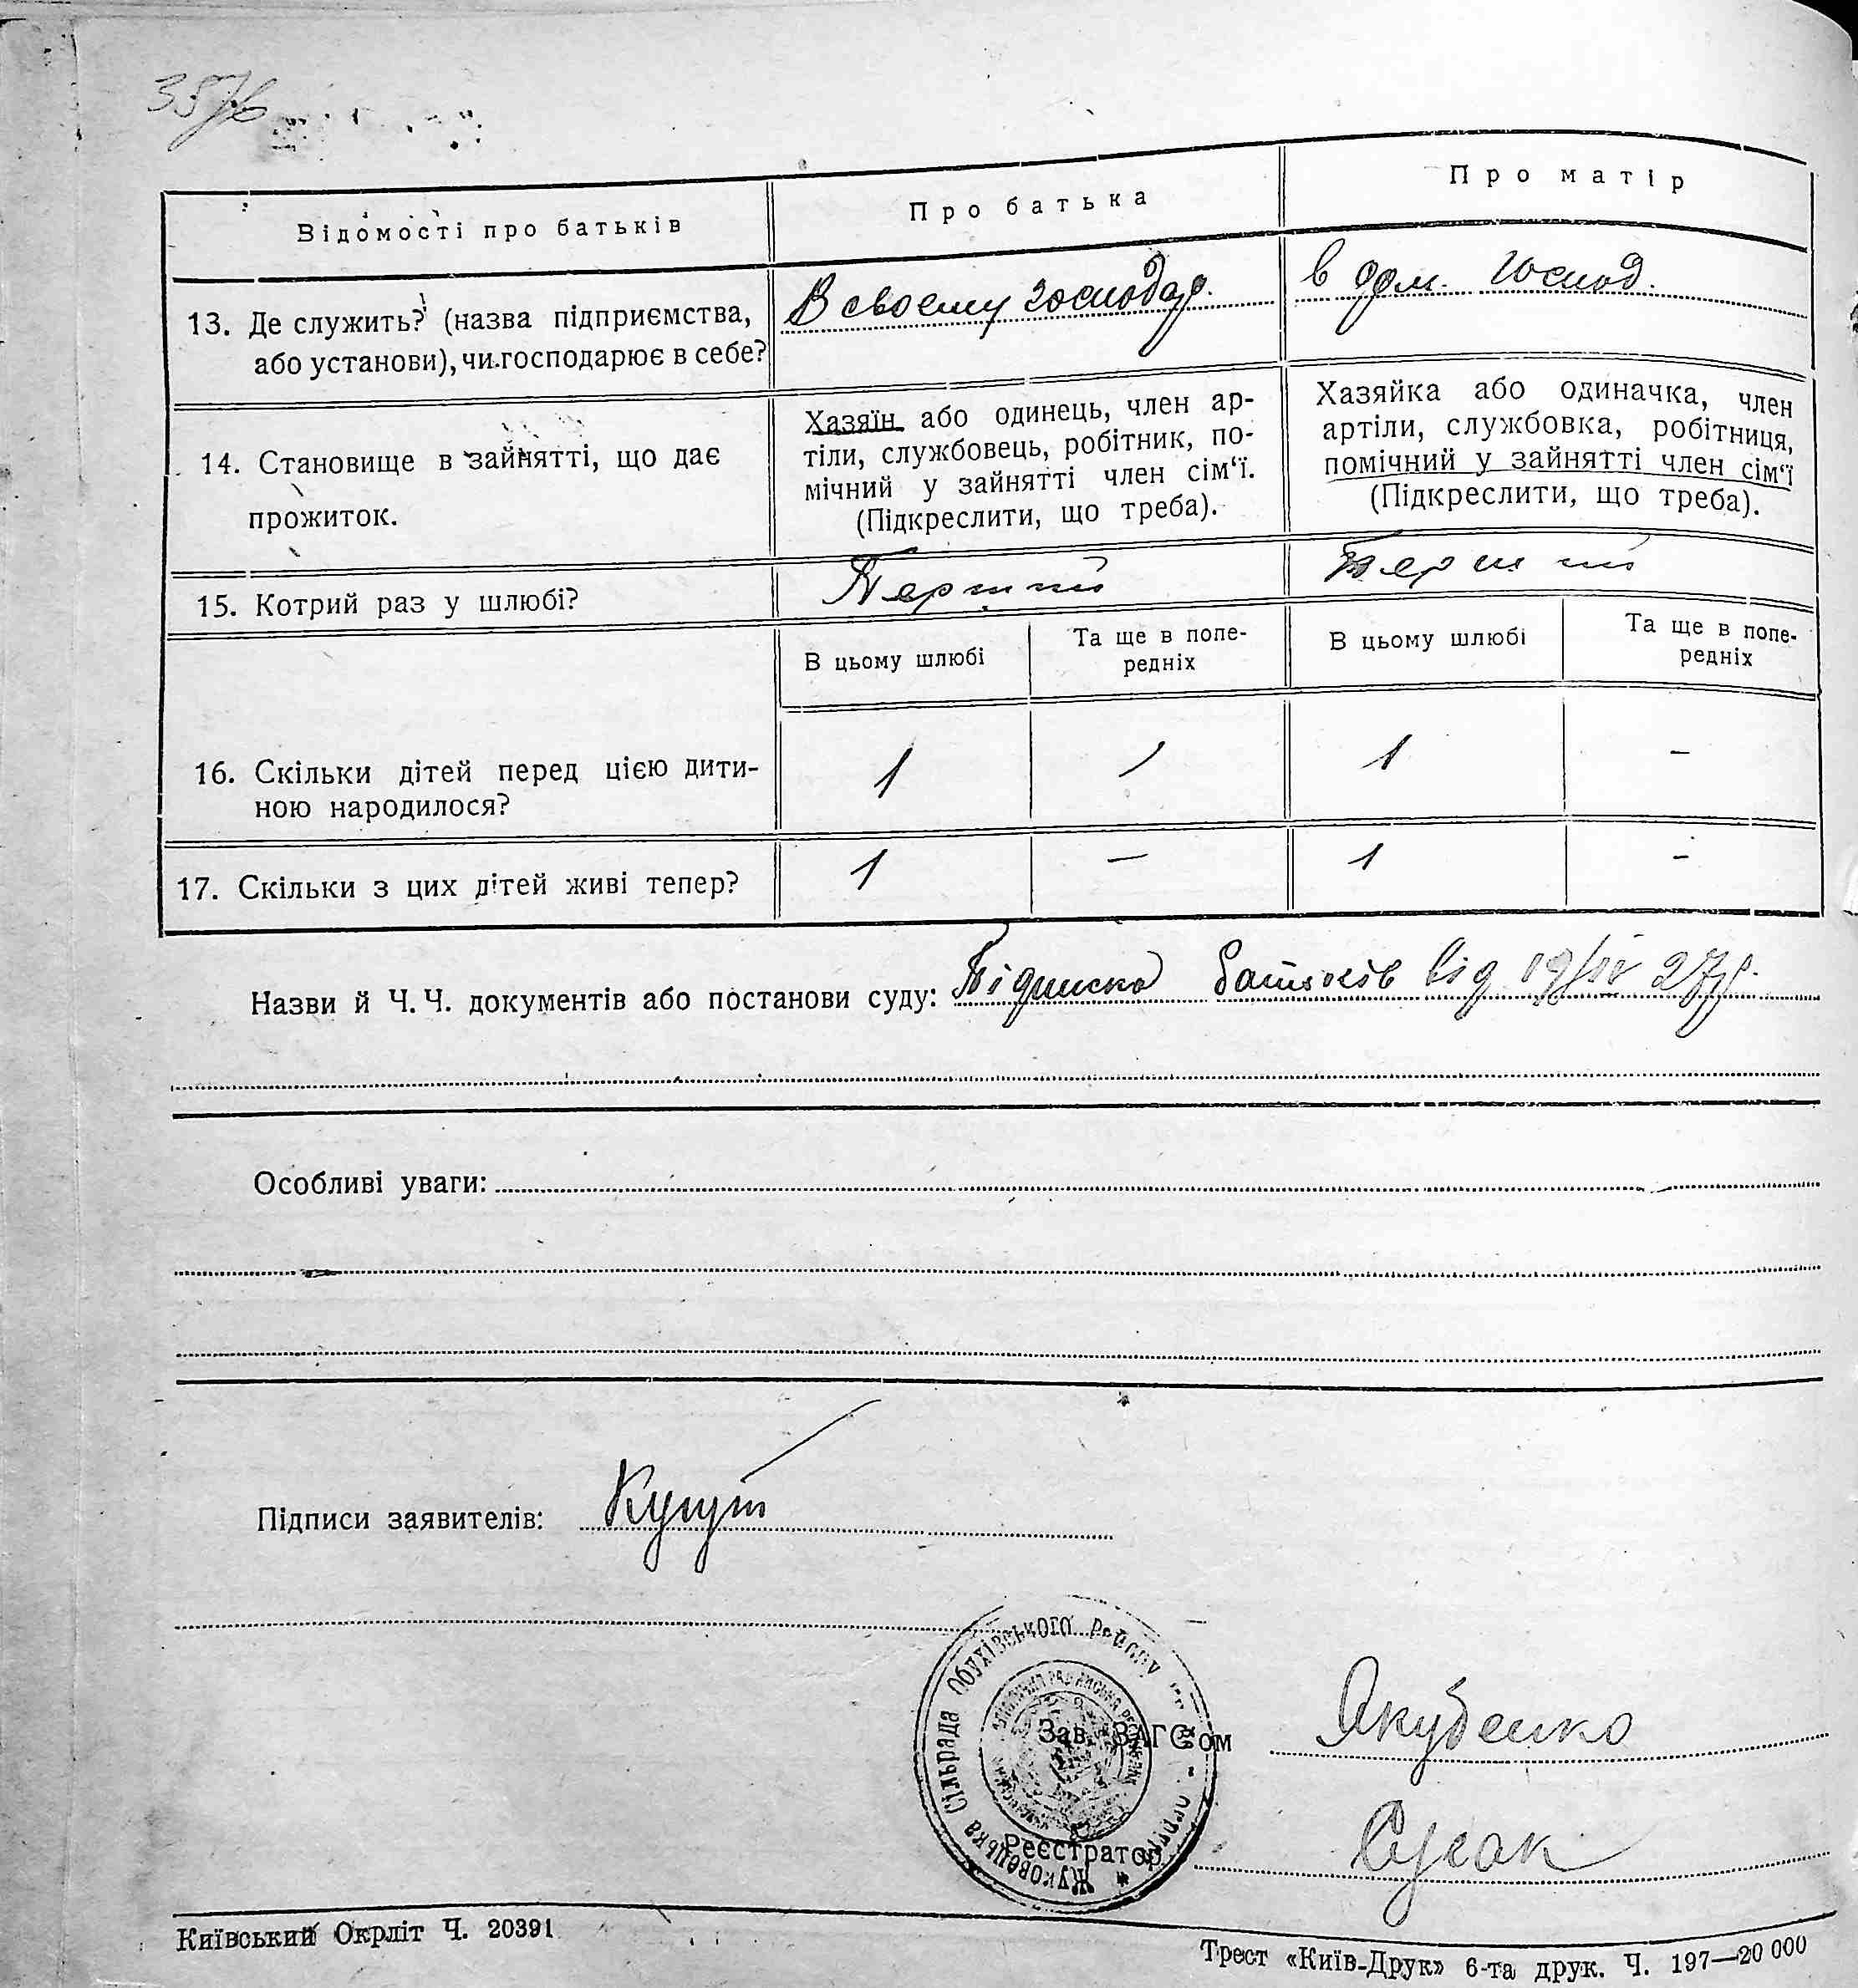 357б
Відомості про батьків
Про батька
Про матір
13. Де служить? (назва підприємства,
або установи), чи господарює в себе?
В своему господар.
в дом. господ.
14. Становище в зайнятті, що дає
прожиток.
Хазяїн або одинець, член ар-
тіли, службовець, робітник, по-
мічний у зайнятті член сім‘ї.
(Підкреслити, що треба).
Хазяйка або одиначка, член
артіли, службовка, робітниця,
помічний у зайнятті член сім‘ї
(Підкреслити, що треба).
15. Котрий раз у шлюбі?
Перший
Перший
В цьому шлюбі
Та ще в попе-
редніх
В цьому шлюбі
Та ще в попе-
редніх
16. Скільки дітей перед цією дити-
ною народилося?
1 – 1 –
17. Скільки з цих дітей живі тепер?
1 – 1 –
Назви й Ч. Ч. документів або постанови суду: Підписка батьків від 19/IV 27р.
Особливі уваги:
Підписи заявителів: Кугут
Жуковецька Сільрада Обухівського Району
Зав. ЗАГС'ом Якубенко
Реєстратор Сусак
Київський Окрліт Ч. 20391
Трест «Київ-Друк» 6-та друк. Ч. 197—20 000